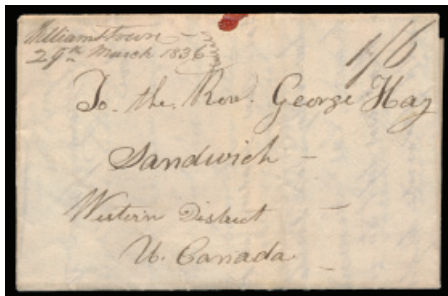 Williamstown
29th March 1836
1/6
To the Rev. George Hay
Sandwich
Western District
U. Canada